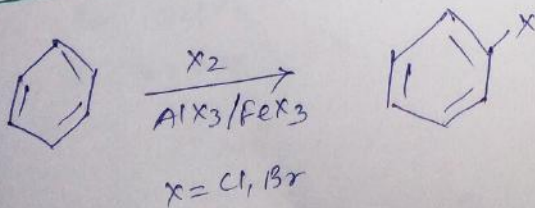 X
X2
AlX3/FeX3
X = Cl, Br